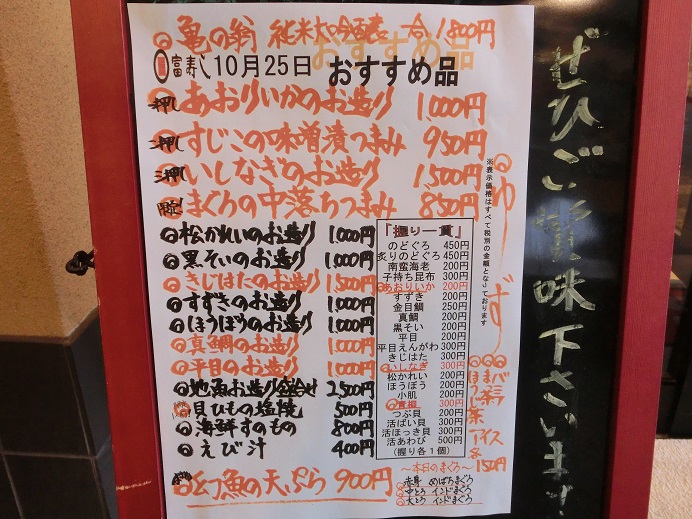 亀の翁 純米大吟醸 一合 1,800円
おすすめ品
富寿し 10月25日 おすすめ品
押し あおりいかのお造り 1,000円
二押し すじこの味噌漬つまみ 950円
三押し いしなぎのお造り 1,500円
まぐろの中落ちつまみ 850円
松かれいのお造り 1,000円
黒そいのお造り 1,000円
きじはたのお造り 1,500円
すずきのお造り 1,000円
ほうぼうのお造り 1,000円
真鯛のお造り 1,000円
平目のお造り 1,000円
地魚お造り盛合せ 2,500円
貝ひもの塩焼 500円
海鮮すのもの 800円
えび汁 400円
幻魚の天ぷら 900円
『握り一貫』
のどぐろ 450円
炙りのどぐろ 450円
南蛮海老 200円
子持ち昆布 300円
あおりいか 200円
すずき 200円
金目鯛 250円
真鯛 200円
黒そい 200円
平目 200円
平目えんがわ 300円
きじはた 300円
いしなぎ 300円
松かれい 200円
ほうぼう 200円
小肌 200円
300円
つぶ貝 200円
活ばい貝 300円
活ほっき貝 300円
活あわび 500円
(握り各1個)
～本日のまぐろ～
赤身 めばちまぐろ
中とろ インドまぐろ
大とろ インドまぐろ
※表示価格はすべて税別の金額となっております
ゆず
バニラ
アイス
各150円
ぜひご賞味下さいませ